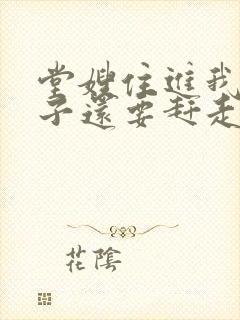 堂嫂住進我
子還要赶走
花陰